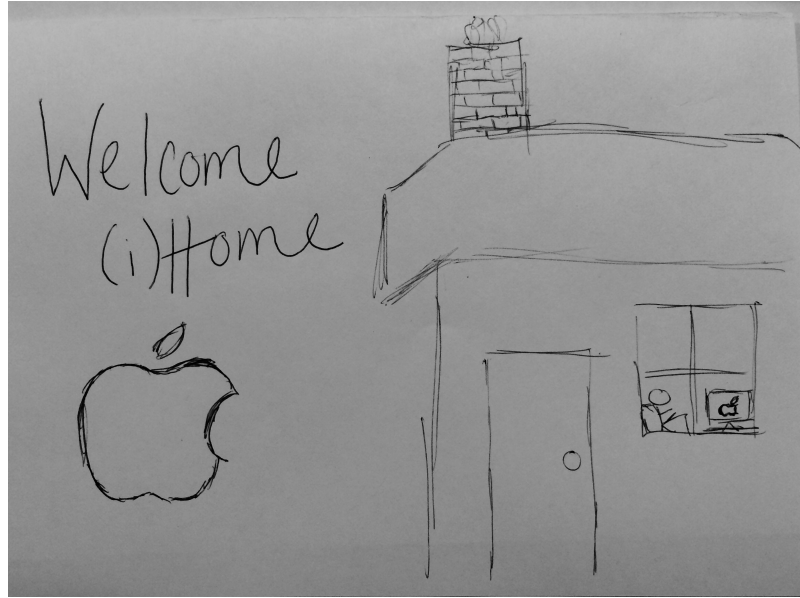 Welcome
(i)Home